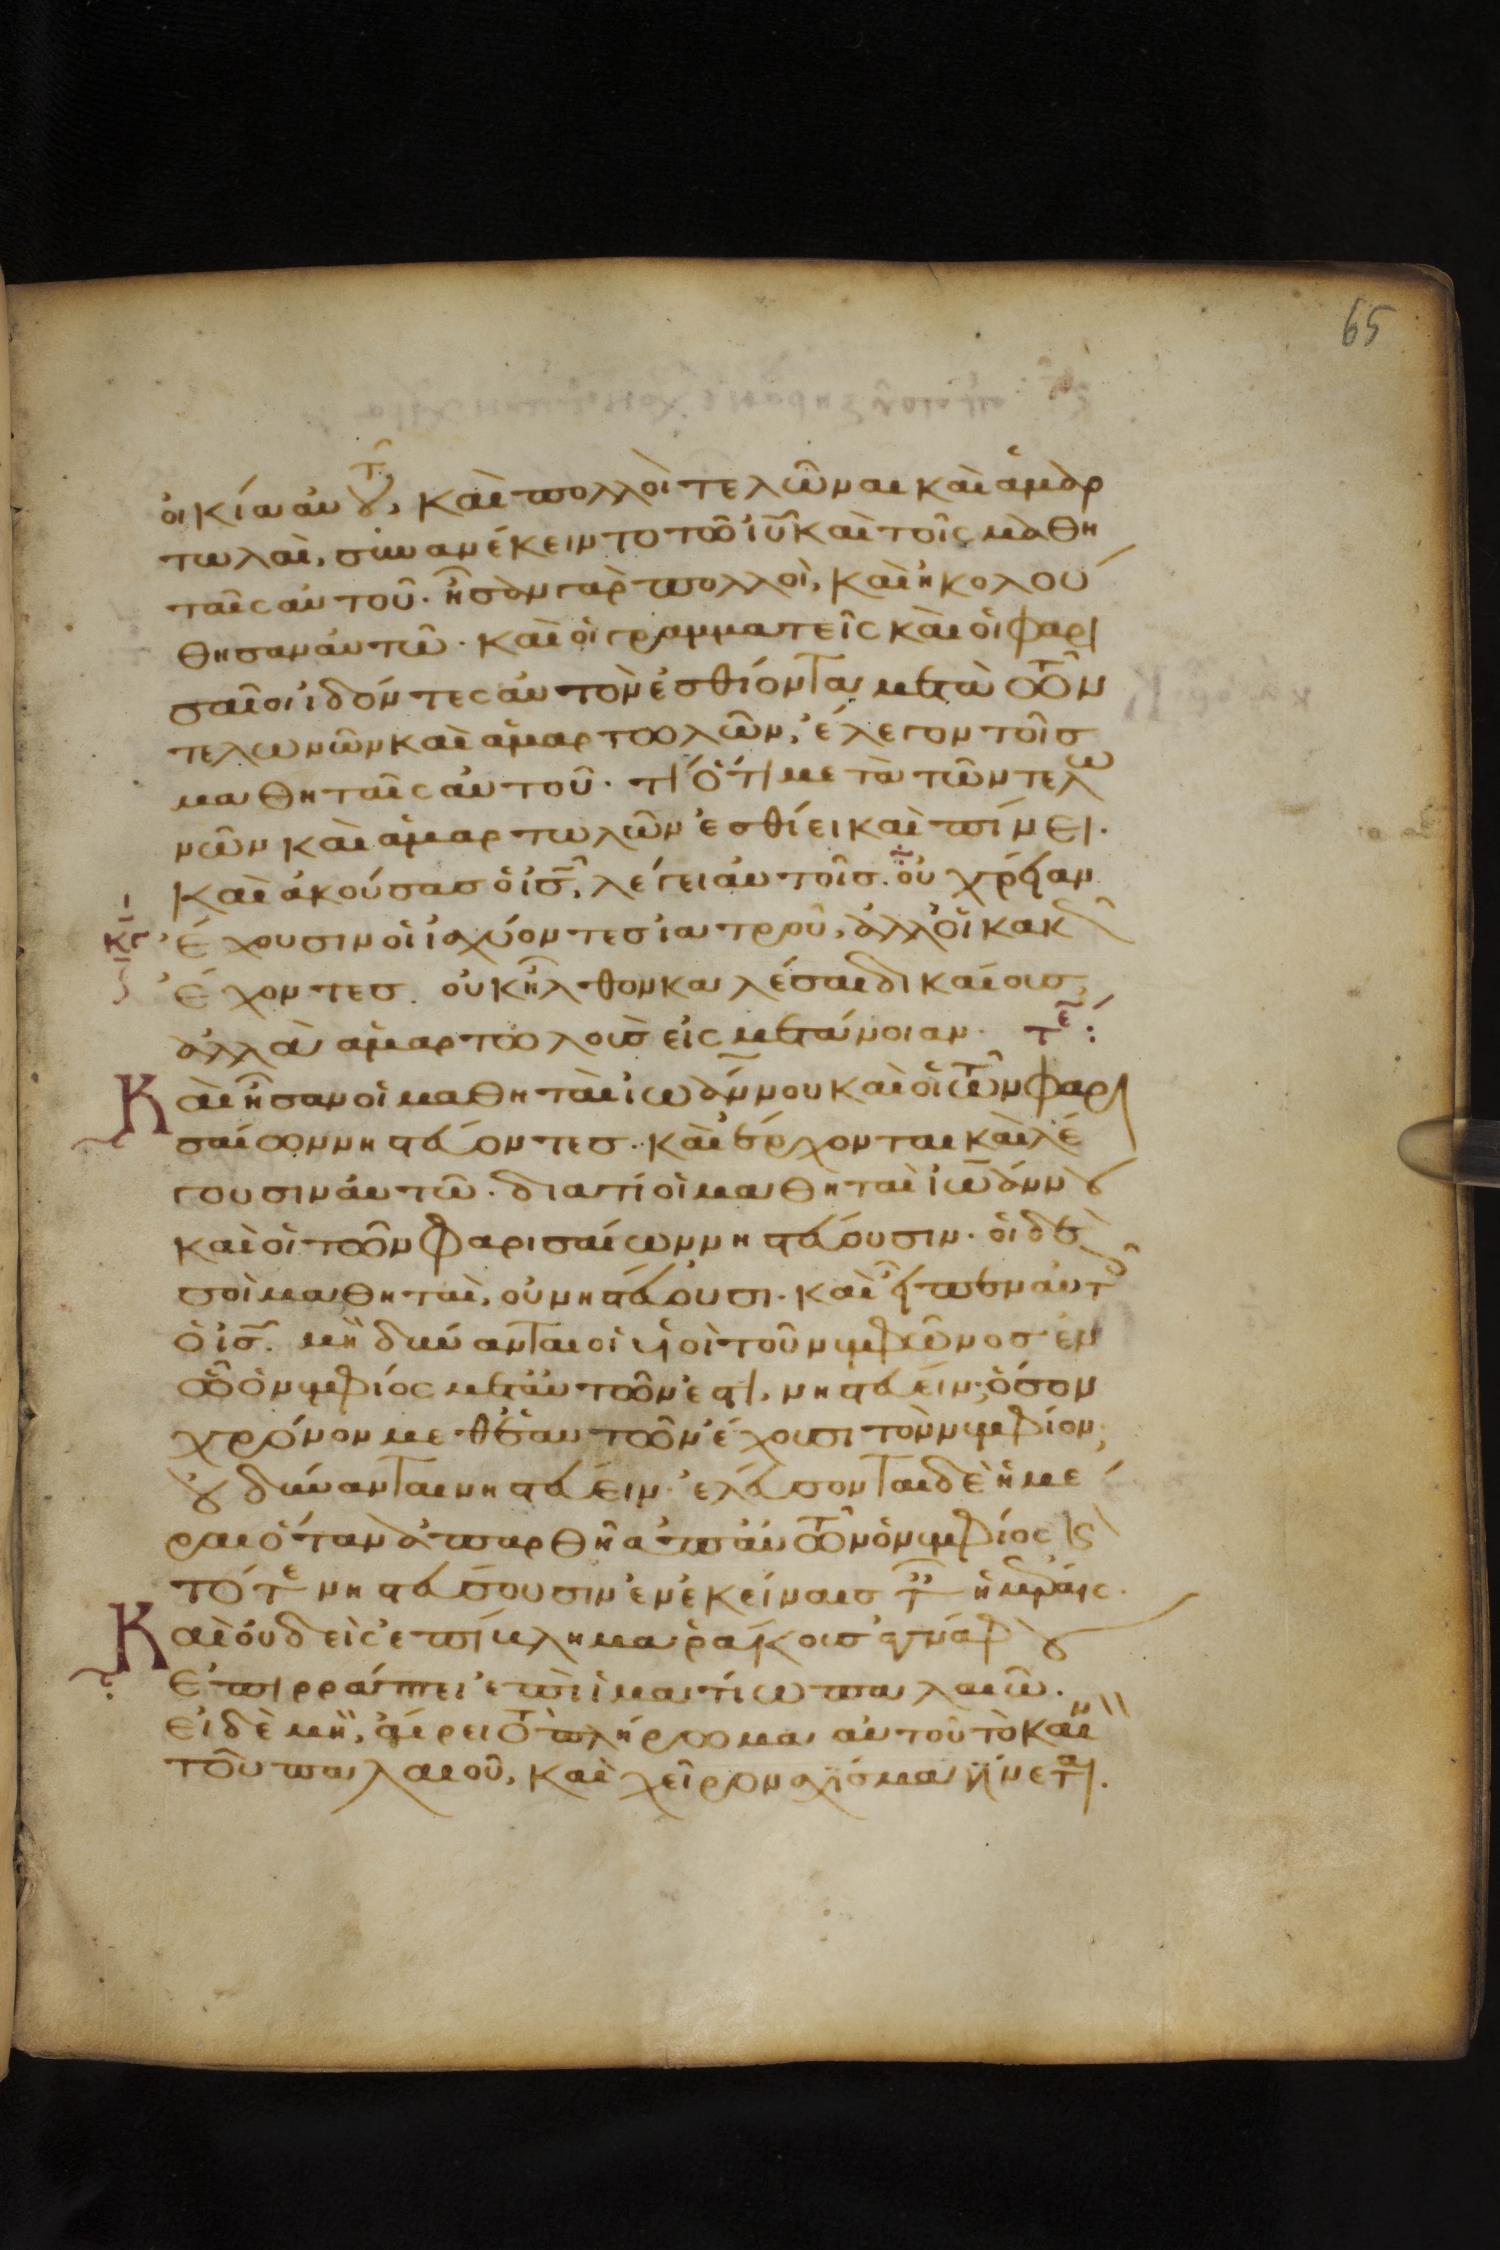 65
οἰκία αὐτοῦ, καὶ πολλοὶ τελῶναι καὶ ἁμαρ
τωλοὶ, συνανέκειντο τῶ ἰῡ καὶ τοῖς μαθη
ταῖς αὐτοῦ· ἦσαν γὰρ πολλοὶ, καὶ ἠκολού
θησαν αὐτῶ· καὶ οἱ γραμματεῖς καὶ οἱ φαρι
σαῖοι ἰδόντες αὐτὸν ἐσθίοντα μετὰ τῶν
τελωνῶν καὶ ἁμαρτωλῶν, ἔλεγον τοῖσ
μαθηταῖς αὐτοῦ· τί ὅτι μετὰ τῶν τελω
νῶν καὶ ἁμαρτωλῶν ἐσθίει καὶ πίνει·
Καὶ ἀκούσασ ὁ ἰσ̄, λέγει αὐτοῖσ· οὐ χρείαν
ἔχουσιν οἱ ἰσχύοντεσ ἰατροῦ, ἀλλ' οἱ κακῶς
ἔχοντεσ. οὐκ ἦλθον καλέσαι δικαίουσ,
ἀλλὰ ἁμαρτωλοὺσ εἰς μετάνοιαν· τε:
Καὶ ἦσαν οἱ μαθηταὶ ἰωάννου καὶ οἱ τῶν φαρι
σαίων νηστεύοντεσ· καὶ ἔρχονται καὶ λέ
γουσιν αὐτῶ· διατί οἱ μαθηταὶ ἰωάννου
καὶ οἱ τῶν φαρισαίων νηστεύουσιν· οἱ δὲ
σοὶ μαθηταὶ, οὐ νηστεύουσι· καὶ εἶπεν αὐτοῖς
ὁ ἰσ̄. μὴ δύνανται οἱ υἱοὶ τοῦ νυμφῶνοσ ἐν
ῶ ὁ νυμφίος μετ' αὐτῶν ἐστι, νηστεύειν; ὅσον
χρόνον μεθ' ἑαυτῶν ἔχουσι τὸν νυμφίον,
οὐ δύνανται νηστεύειν· ἐλεύσονται δὲ ἡμέ
ραι ὅταν ἀπαρθῆ ἀπ' αὐτῶν ὁ νυμφίος καὶ
τότε νηστεύσουσιν ἐν ἐκείναισ ταῖς ἡμέραις·
Καὶ οὐδεὶς ἐπίβλημα ῥάκουσ ἀγνάφου
ἐπιρράπτει ἐπὶ ἱματίω παλαιῶ·
εἰ δὲ μὴ, αἴρει τὸ πλήρωμα αὐτοῦ τὸ καινὸν
τοῦ παλαιοῦ, καὶ χεῖρον σχίσμα γίνεται.